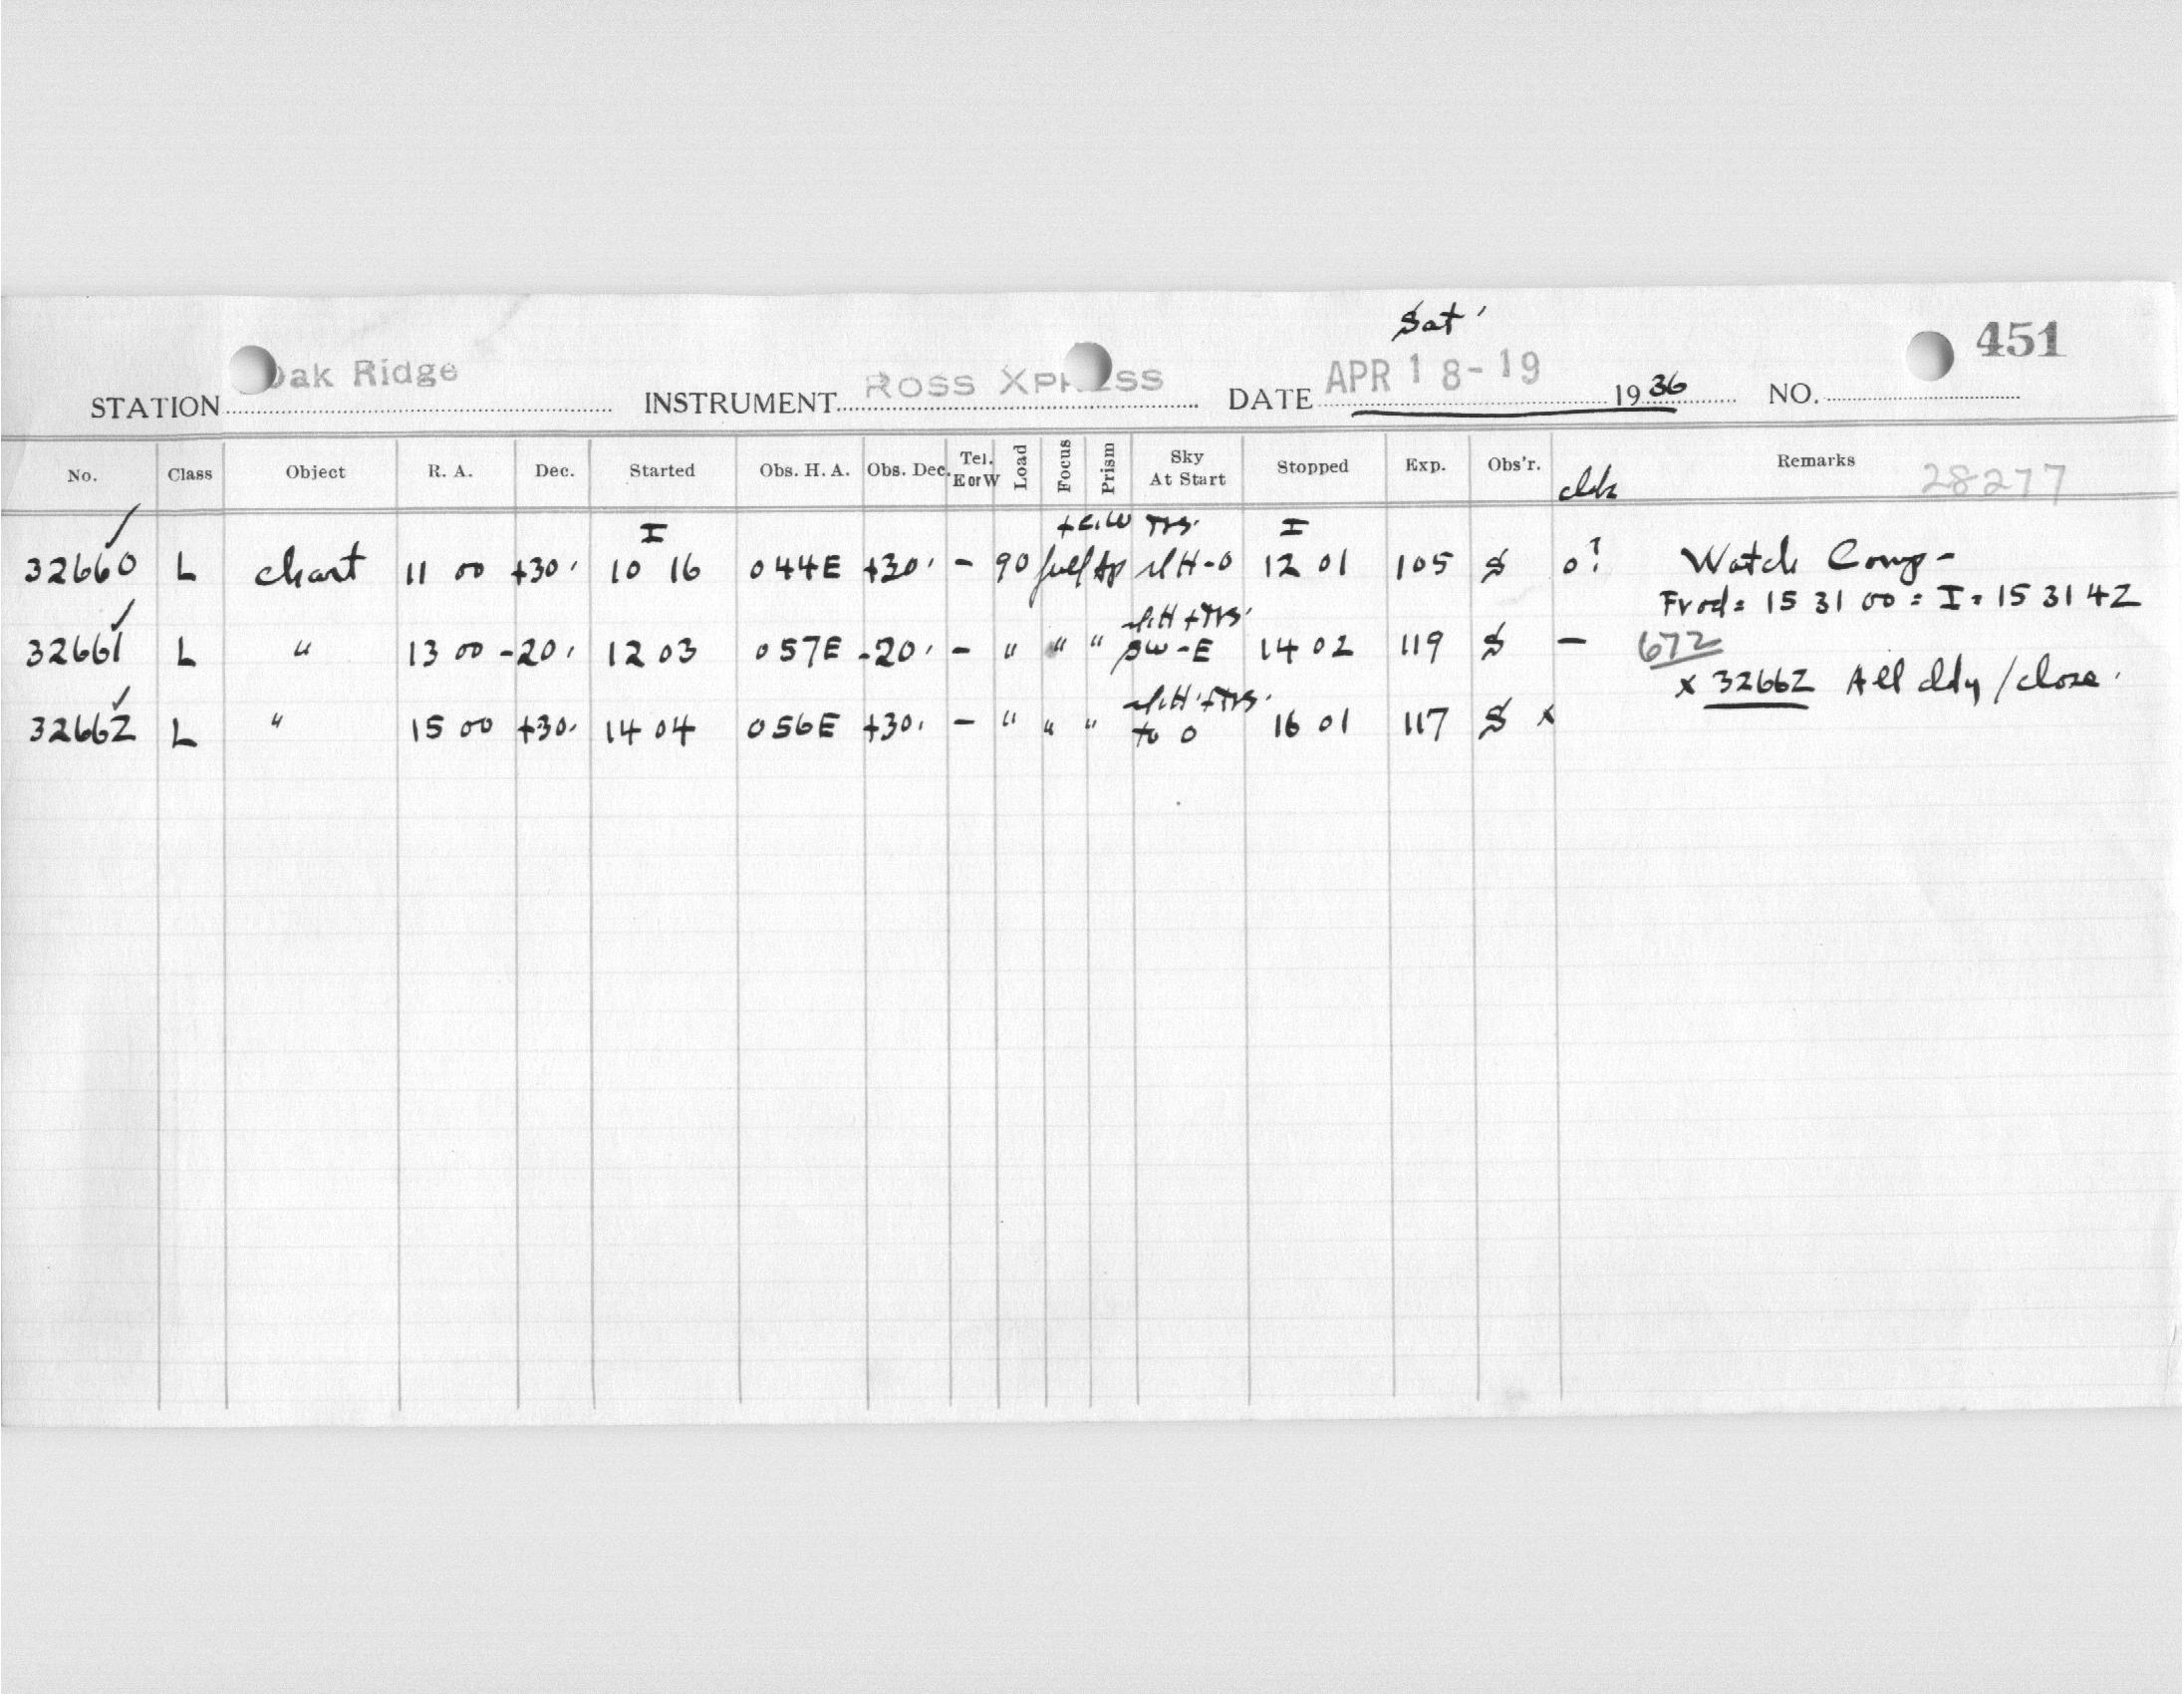 Sat'
451
STATION Oak Ridge INSTRUMENT ROSS XPRESS DATE APR 18-19 1936 NO.
No. Class Object R. A. Dec. Started Obs. H. A. Obs. Dec. Tel. E or W Load Focus Prism Sky At Start Stopped Exp. Obs'r. clds Remarks 28277
I I
32660 L chart 11 00 +30 10 16 0 44E +30 - 90 full Ap H-0 12 01 105 S 0? Watch Comp -
Frod = 15 31 00 = I = 15 31 42
32661 L " 13 00 -20 12 03 0 57E -20 - " " " SW-E 14 02 119 S — 672
x 32662 All cldy/close.
32662 L " 15 00 +30 14 04 0 56E +30 - " " " to 0 16 01 117 S x